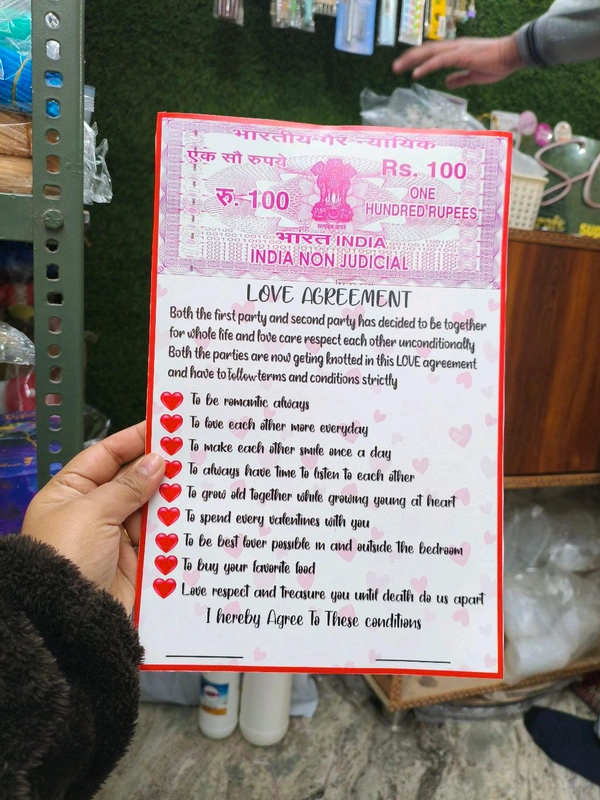 भारतीय गैर न्यायिक
एक सौ रुपये
Rs. 100
रु. 100
ONE
HUNDRED RUPEES
सत्यमेव जयते
भारत INDIA
INDIA NON JUDICIAL
LOVE AGREEMENT
Both the first party and second party has decided to be together
for whole life and love care respect each other unconditionally
Both the parties are now geting knotted in this LOVE agreement
and have to follow terms and conditions strictly
To be romantic always
To love each other more everyday
To make each other smile once a day
To always have time to listen to each other
To grow old together while growing young at heart
To spend every valentines with you
To be best lover possible in and outside the bedroom
To buy your favorite food
Love respect and treasure you until death do us apart
I hereby Agree To These conditions